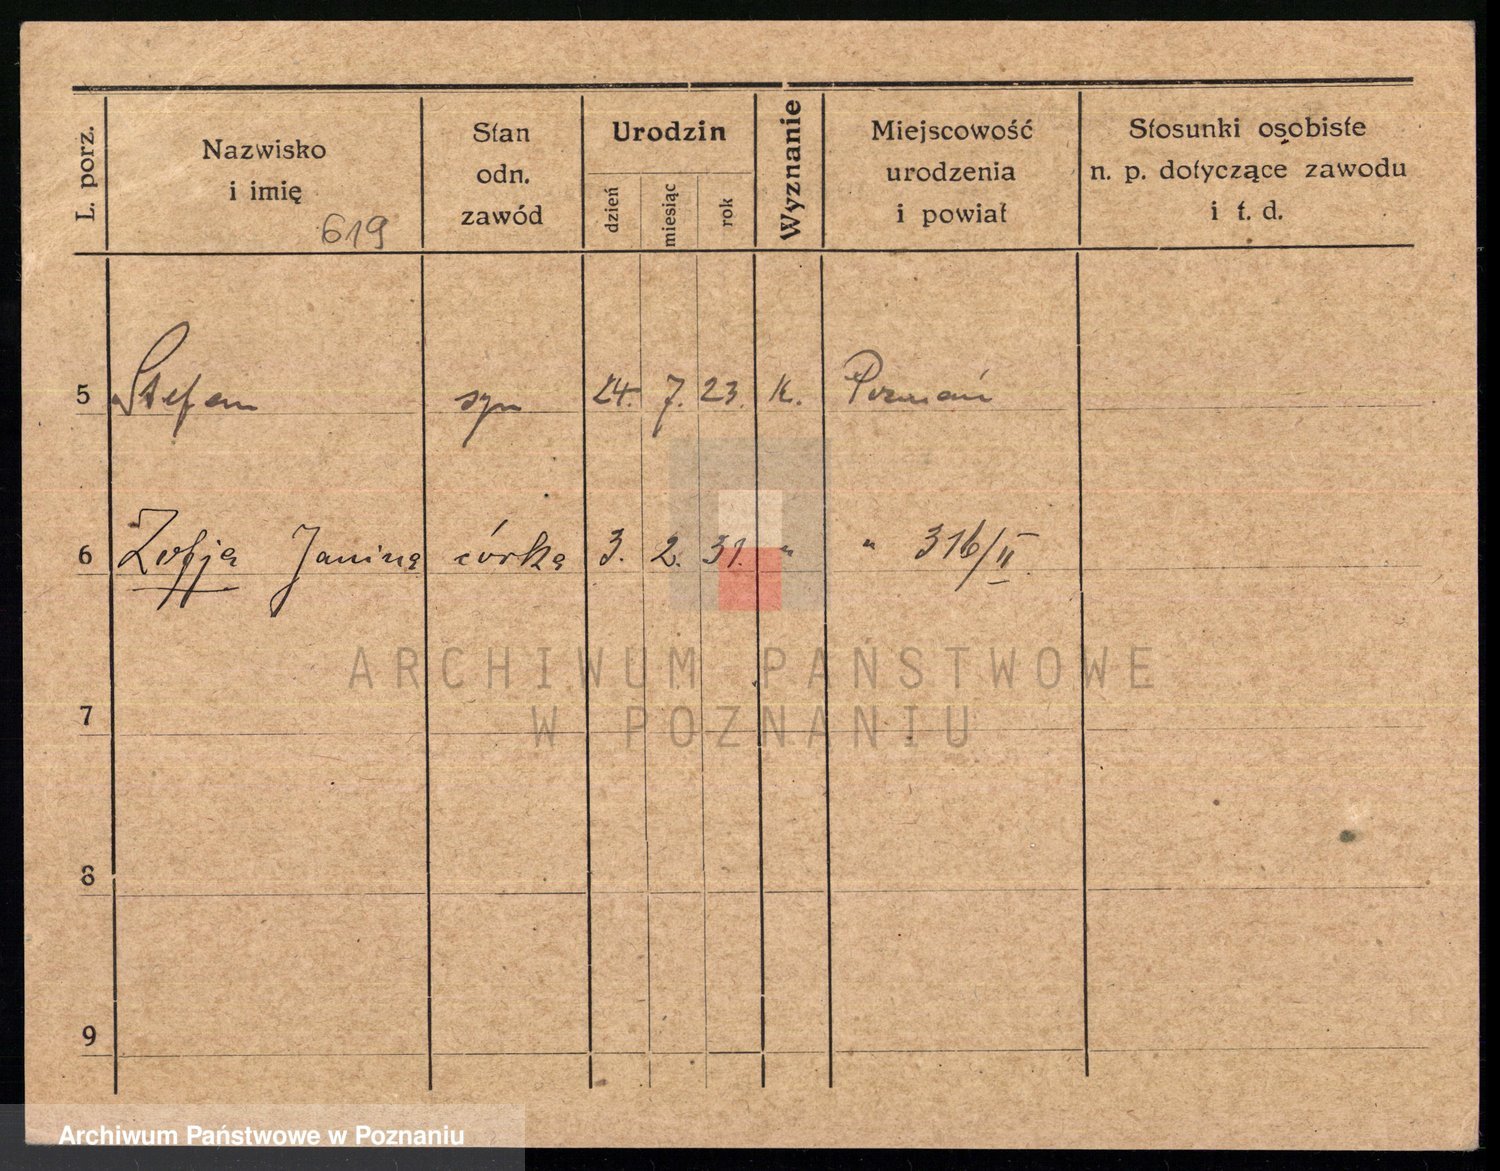 L. porz.
Nazwisko
i imię
619
Stan
odn.
zawód
Urodzin
dzień
miesiąc
rok
Wyznanie
Miejscowość
urodzenia
i powiat
Stosunki osobiste
n. p. dotyczące zawodu
i t. d.
5 Stefan syn 24. 7. 23. K. Poznań
6 Zofja Janina córka 3. 2. 31. " " 316/II
ARCHIWUM PAŃSTWOWE
W POZNANIU
7
8
9
Archiwum Państwowe w Poznaniu